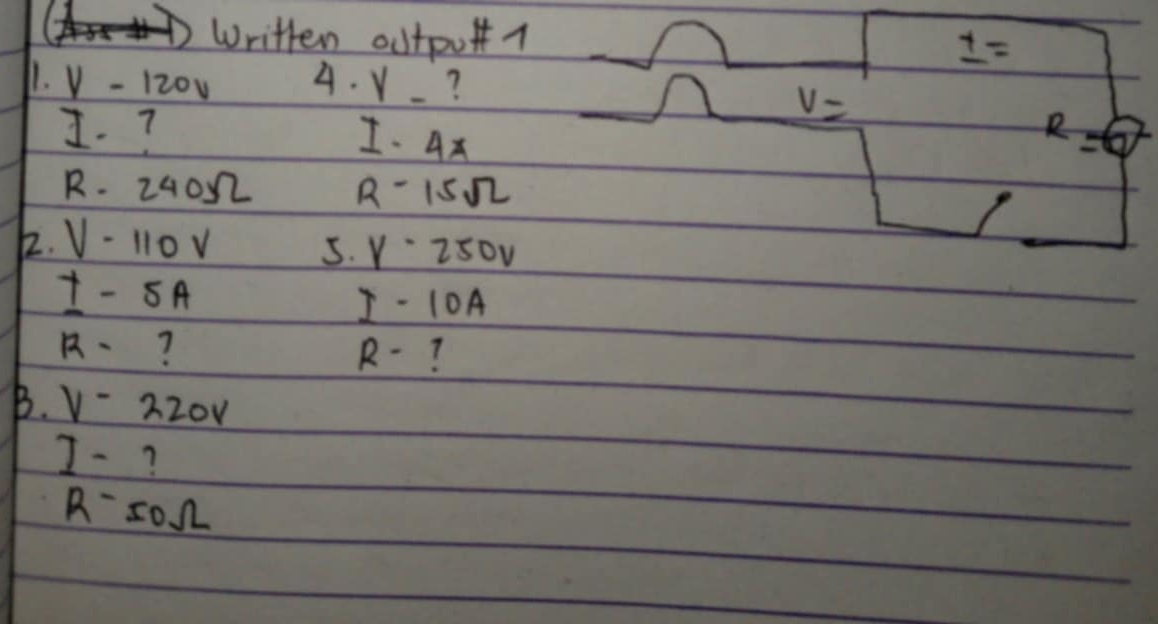 Written output# 1
1. V - 120V
I - ?
R - 240Ω
2. V - 110V
I - 5A
R - ?
3. V - 220V
I - ?
R - 50Ω
4. V - ?
I - 4A
R - 15Ω
5. V - 250V
I - 10A
R - ?
I =
V =
R =